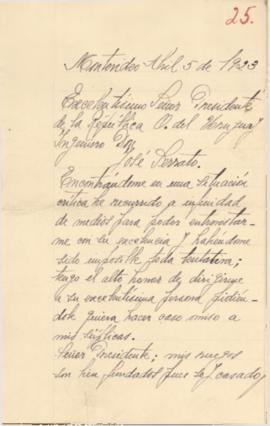 25.
Montevideo Abril 5 de 1923
Excelentísimo Señor Presidente
de la República O. del Uruguay
Ingeniero Don
José Serrato.
Encontrándome en una situación
crítica he recurrido a infinidad
de medios para poder entrevistar-
me con su excelencia y habiéndome
sido imposible toda tentativa;
tengo el alto honor de dirigirme
a su excelentísima persona pidién-
dole quiera hacer caso omiso a
mis súplicas.
Señor Presidente; mis ruegos
son bien fundados pues soy casado